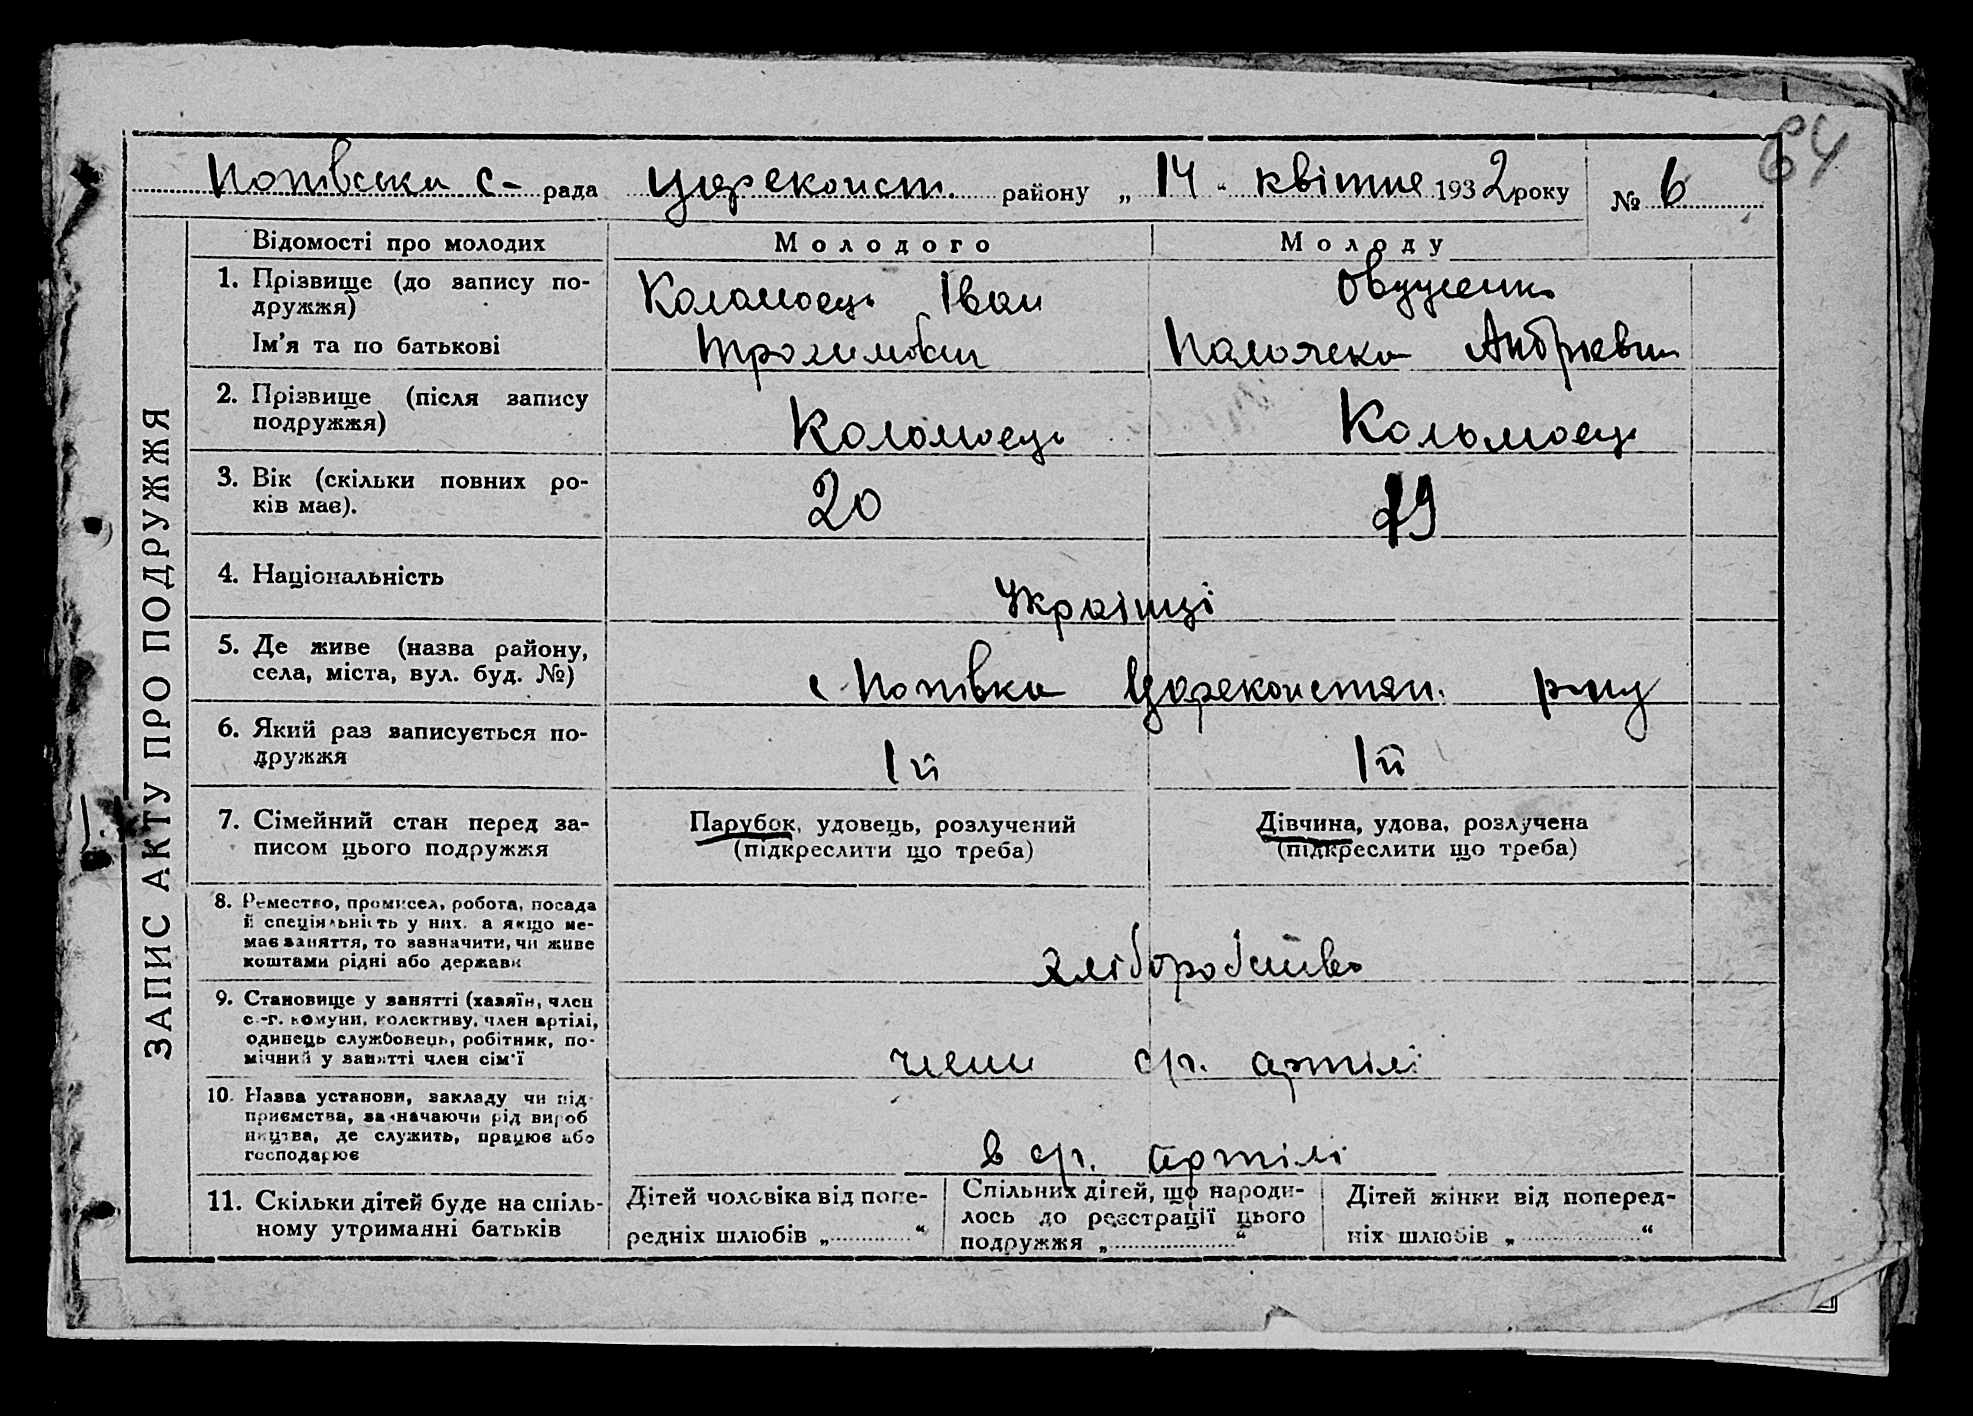 64
Попівська с- рада Цареконст. району „ 14 “ квітня 1932 року № 6
ЗАПИС АКТУ ПРО ПОДРУЖЖЯ
Відомості про молодих Молодого Молоду
1. Прізвище (до запису по-
дружжя)
Коломоець Іван Овдуенко
Ім’я та по батькові Трохимович Палажка Андріевн
2. Прізвище (після запису
подружжя)
Коломоець Кольмоець
3. Вік (скільки повних ро-
ків має).
20 19
4. Національність Украінці
5. Де живе (назва району,
села, міста, вул. буд. №)
с Попівка Цареконстян. р-ну
6. Який раз записується по-
дружжя
1й 1й
7. Сімейний стан перед за-
писом цього подружжя
Парубок, удовець, розлучений
(підкреслити що треба)
Дівчина, удова, розлучена
(підкреслити що треба)
8. Ремество, промисел, робота, посада
й спеціяльність у них, а якщо не-
має заняття, то зазначити, чи живе
коштами рідні або держави
хліборобство
9. Становище у занятті (хазяїн, член
с.-г. комуни, колективу, член артілі,
одинець службовець, робітник, по-
мічний у занятті член сім’ї
члени с/г. артілі
10. Назва установи, закладу чи під-
приємства, зазначаючи рід вироб
ництва, де служить, працює або
господарює
в с/г. артілі
11. Скільки дітей буде на спіль-
ному утриманні батьків
Дітей чоловіка від попе-
редніх шлюбів „ “
Спільних дітей, що народи-
лось до реєстрації цього
подружжя „ “
Дітей жінки від поперед-
ніх шлюбів „ “